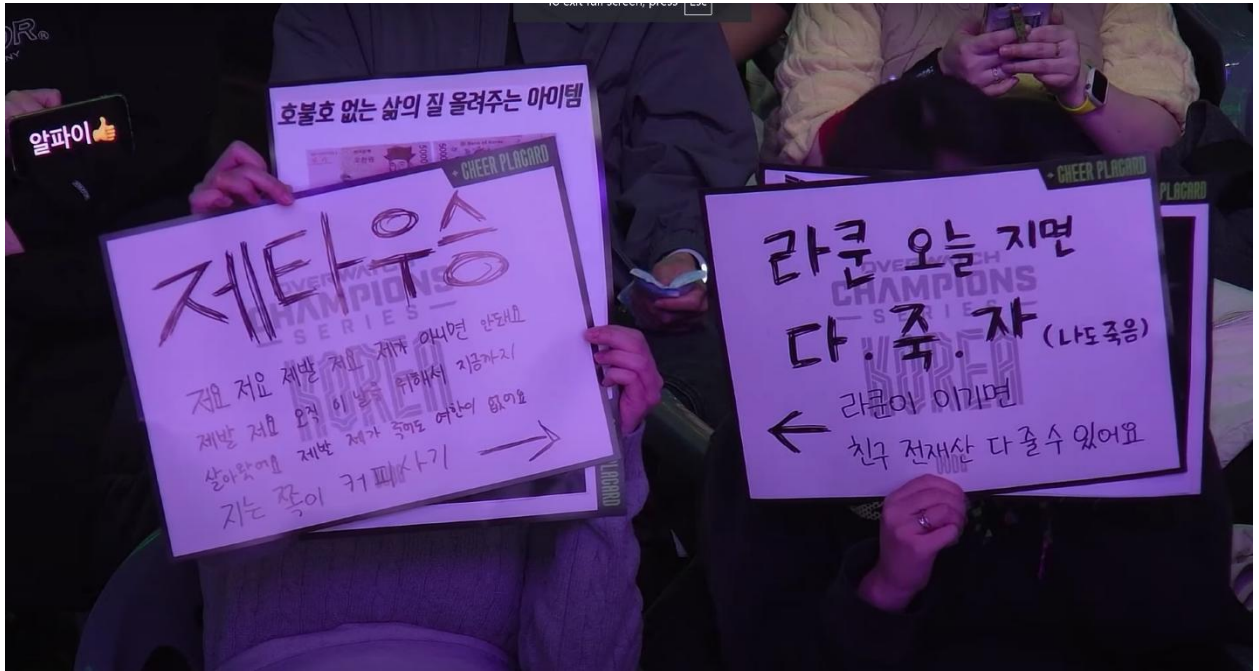 To exit full screen, press Esc
알파이👍
호불호 없는 삶의 질 올려주는 아이템
+ CHEER PLACARD
제타우승
OVERWATCH
CHAMPIONS
SERIES
KOREA
저요 저요 제발 저요 제가 아니면 안돼요
제발 저요 오직 이 날을 위해서 지금까지
살아왔어요 제발 제가 죽어도 여한이 없어요
지는 쪽이 커피사기
PLACARD
+ CHEER PLACARD
PLACARD
라쿤 오늘 지면
다.죽.자 (나도죽음)
OVERWATCH
CHAMPIONS
SERIES
KOREA
라쿤이 이기면
친구 전재산 다 줄 수 있어요